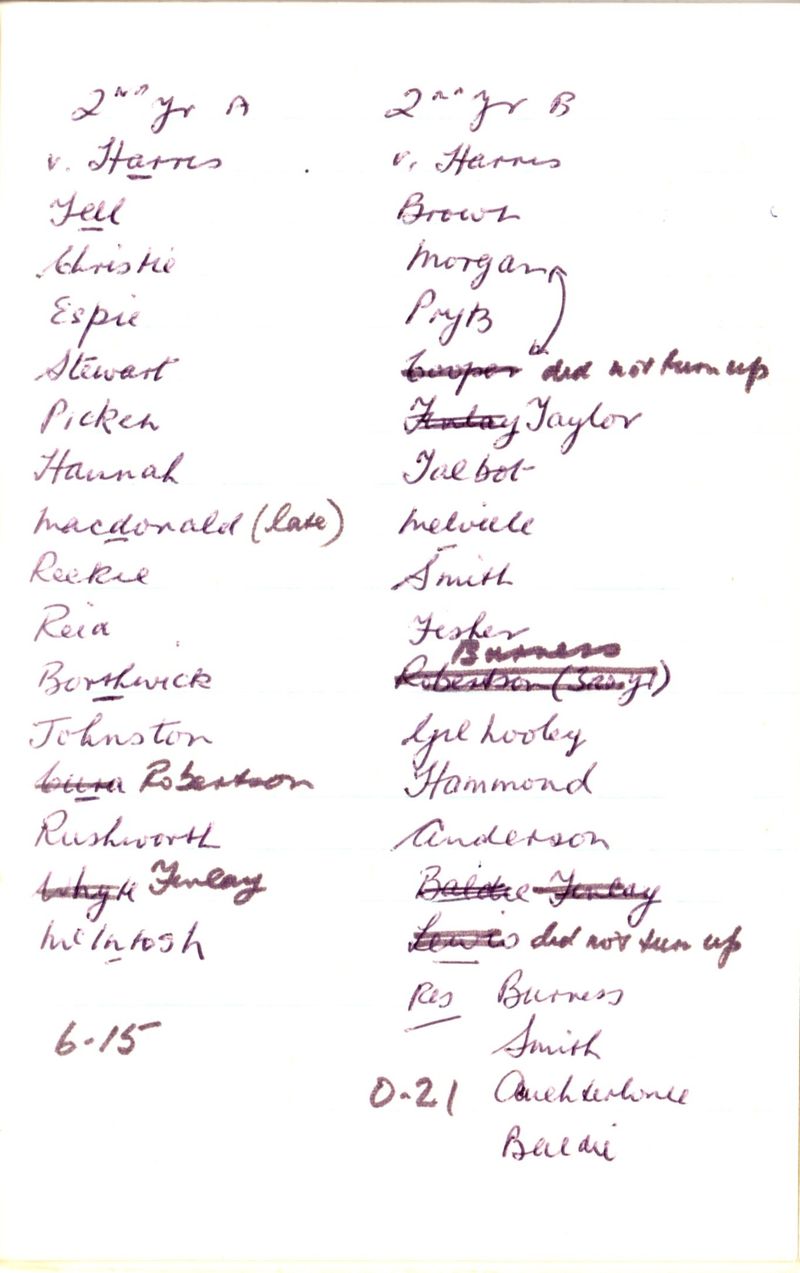 2nd Yr A
v. Harris
Fell
Christie
Espie
Stewart
Picken
Hannah
Macdonald (late)
Reekie
Reid
Borthwick
Johnston
Robertson
Rushworth
Whyte Finlay
McIntosh
6-15
2nd Yr B
v. Harris
Brown
Morgan
Pryb
Cooper did not turn up
Finlay Taylor
Talbot
Melville
Smith
Fisher
Burness
Robertson (3rd yr)
Gilhooley
Hammond
Anderson
Baldie Finlay
Lewis did not turn up
Res Burness
Smith
0-21 Auchterlonie
Baldie